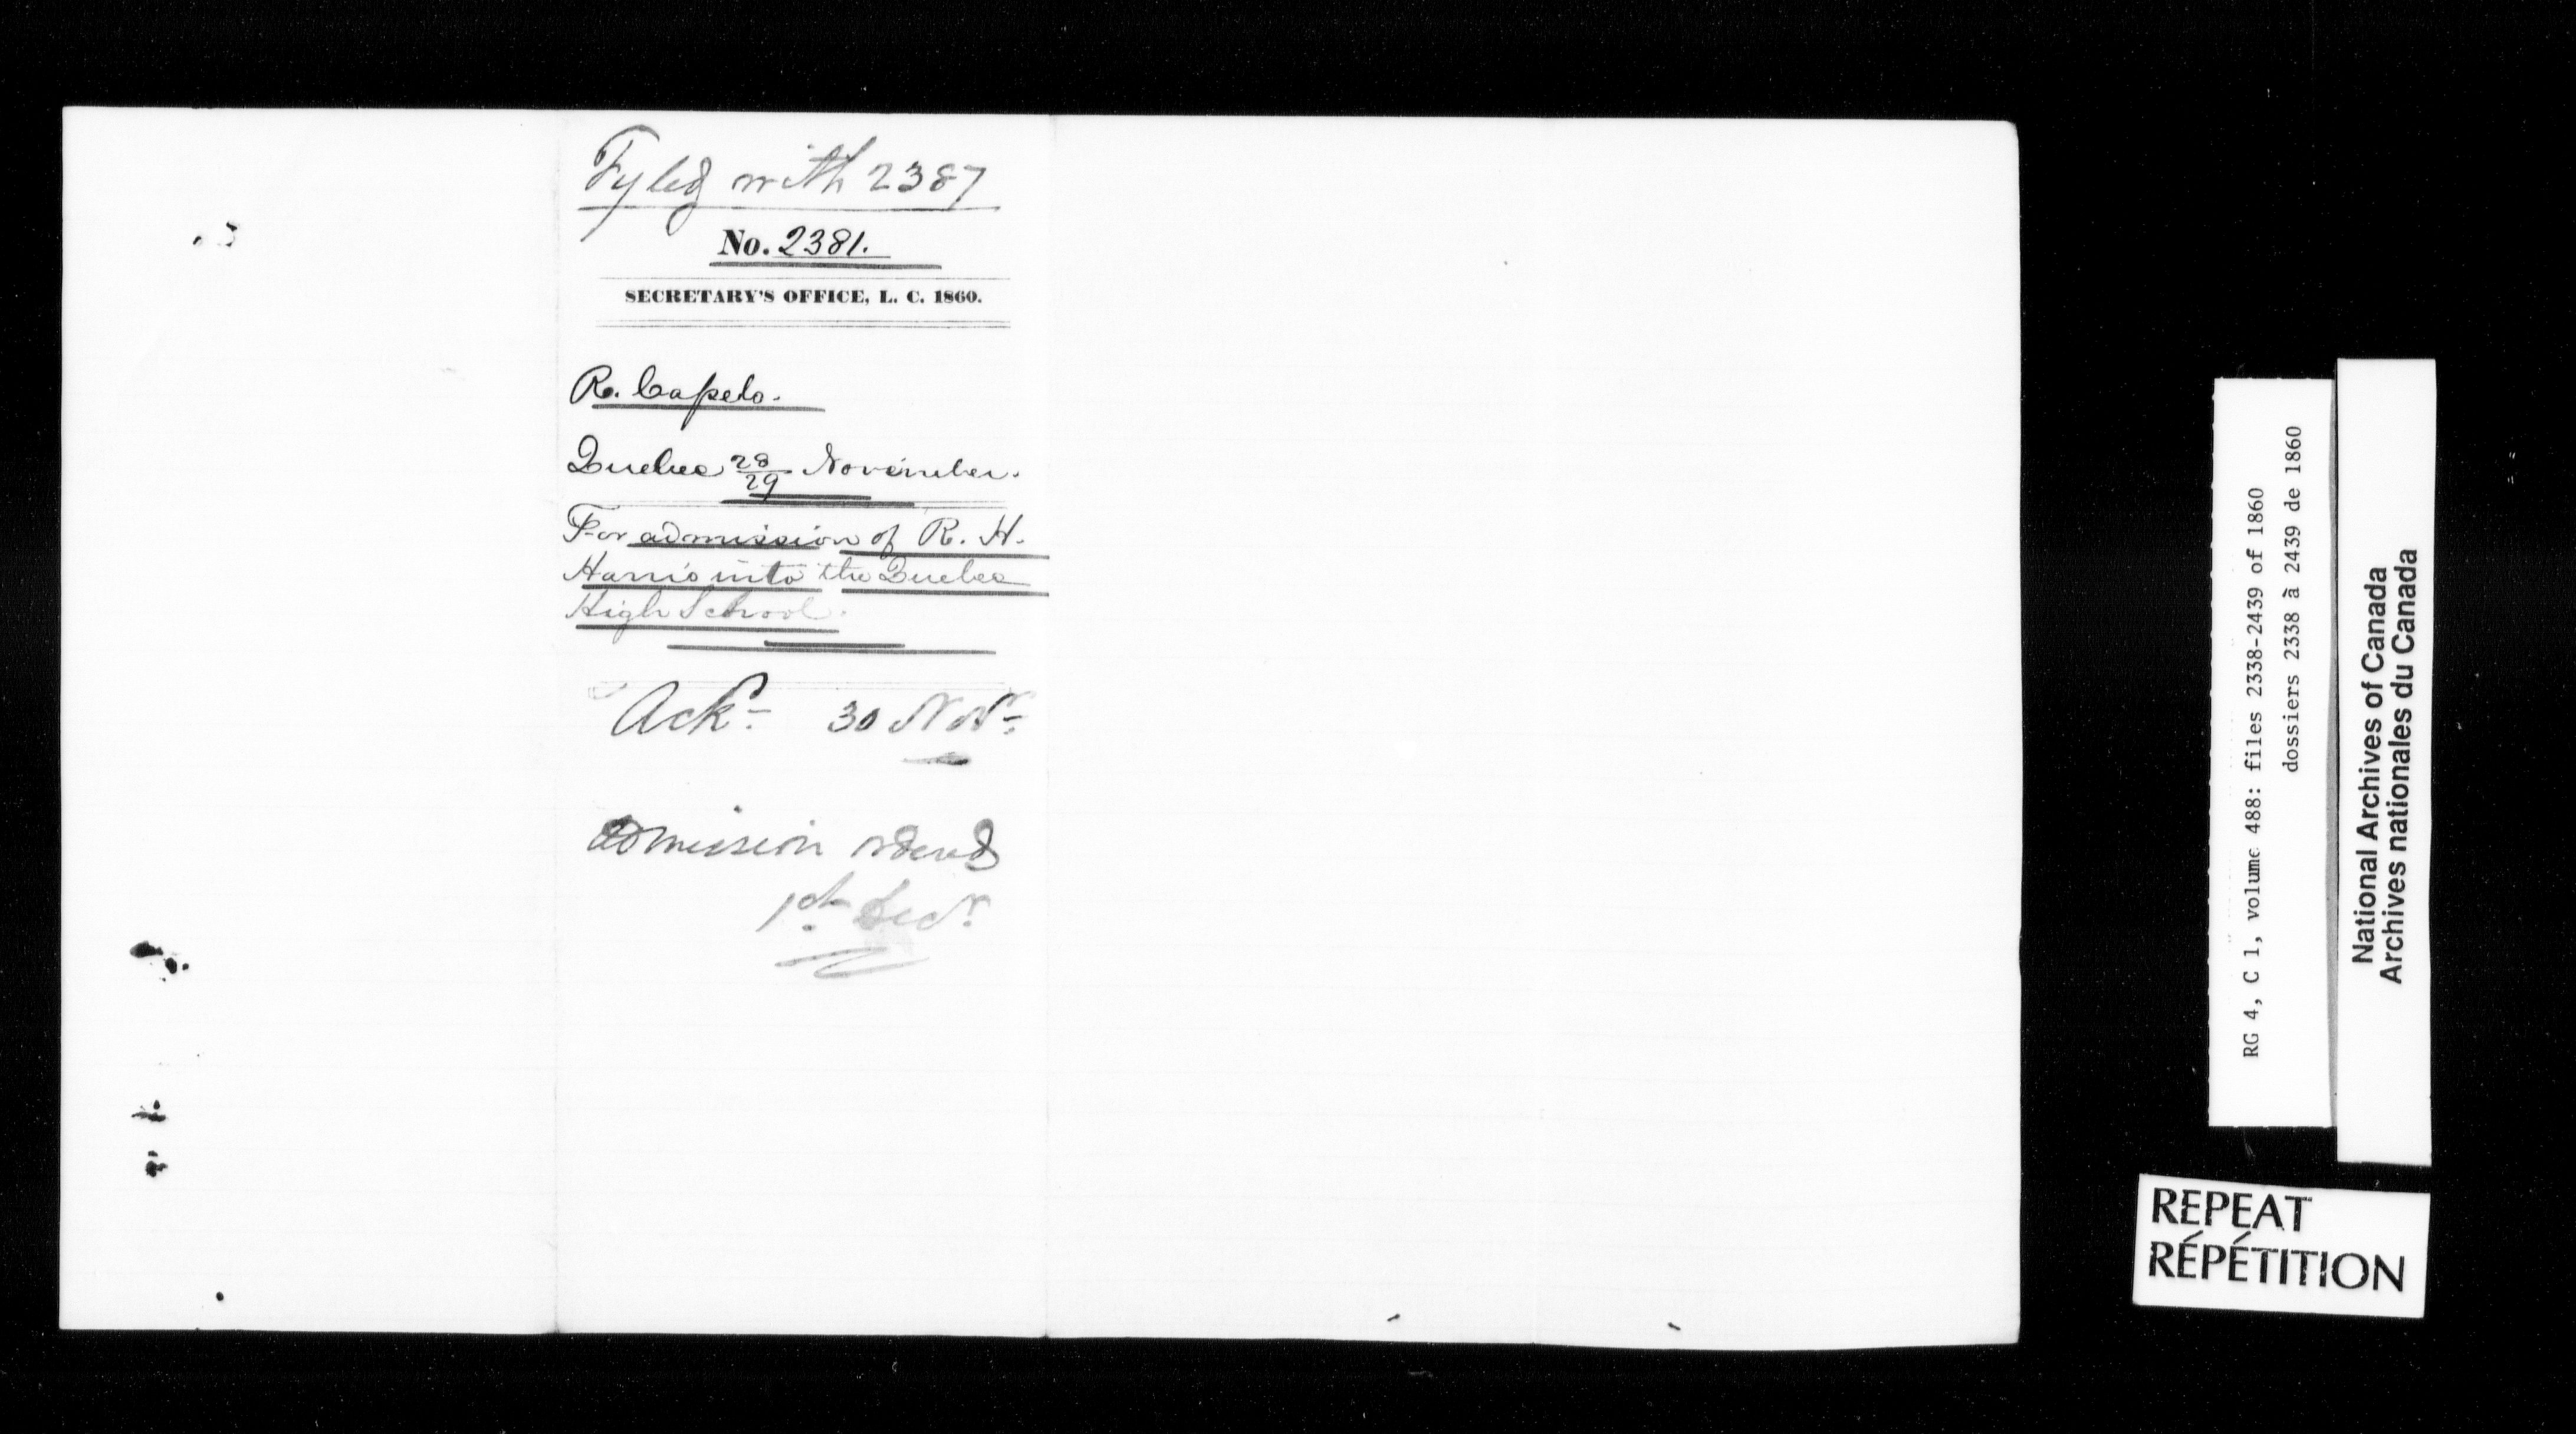 Fyled with 2387
No. 2381.
SECRETARY'S OFFICE, L. C. 1860.
R. Capelo.
Quebec 28/29 November.
For admission of R. H.
Harris into the Quebec
High School.
Ackd 30 Novr
admission ordered
1st Decr
RG 4, C 1, volume 488: files 2338-2439 of 1860
dossiers 2338 à 2439 de 1860
National Archives of Canada
Archives nationales du Canada
REPEAT
RÉPÉTITION